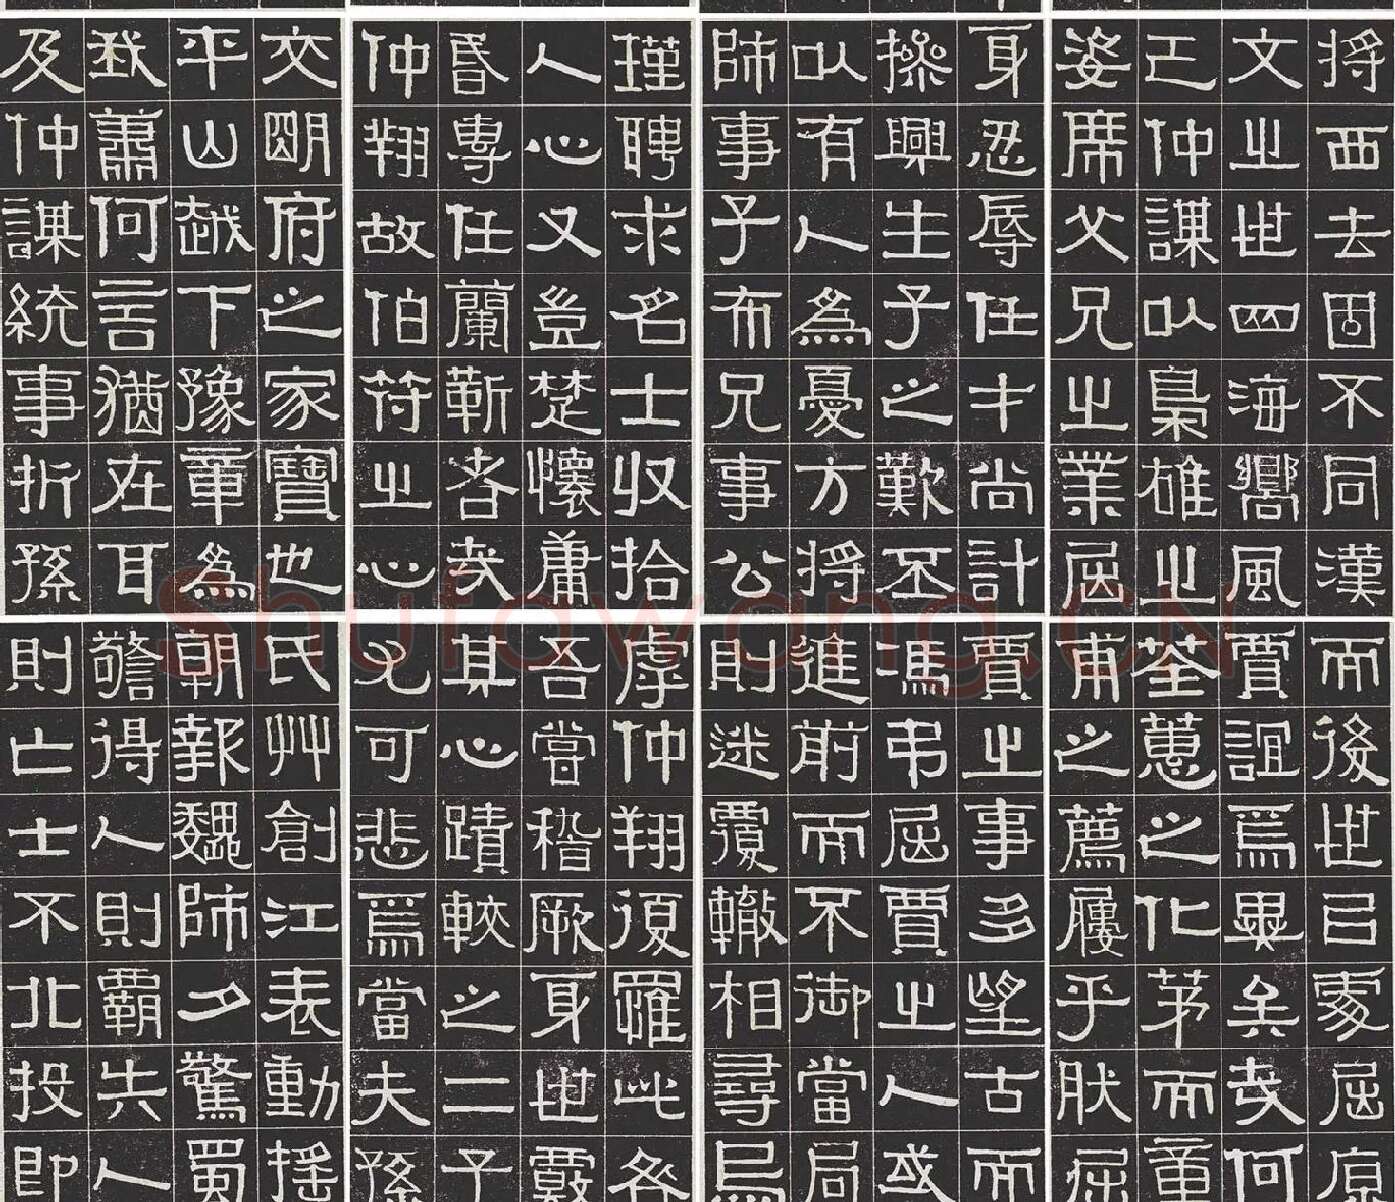 將西去固不同漢
文㞢世四海嚮風
已仲謀以梟雄㞢
姿席父兄㞢業屈
身忍辱任才尚計
操興生子之歎丕
以有人為憂方將
師事子布兄事公
瑾聘求名士收拾
人心又豈楚懷庸
昏專任蘭靳者哉
仲翔故伯符㞢心
夾明府之家寶也
平山越下豫章為
我蕭何言猶在耳
及仲謀統事折孫
而後世㠯屈原
賈誼為異矣哉何
荃蕙之化茅而章
甫之薦屨乎肰屈
賈㞢事多望古而
馮弔屈賈㞢人或
進前而不御當局
則迷覆轍相尋烏
虖仲翔復罹此咎
吾嘗稽厥身世覈
其心蹟較之二子
尤可悲焉當夫孫
氏艸創江表動搖
朝報魏師夕驚蜀
警得人則霸失人
則亡士不北投即
Shufawang.CN